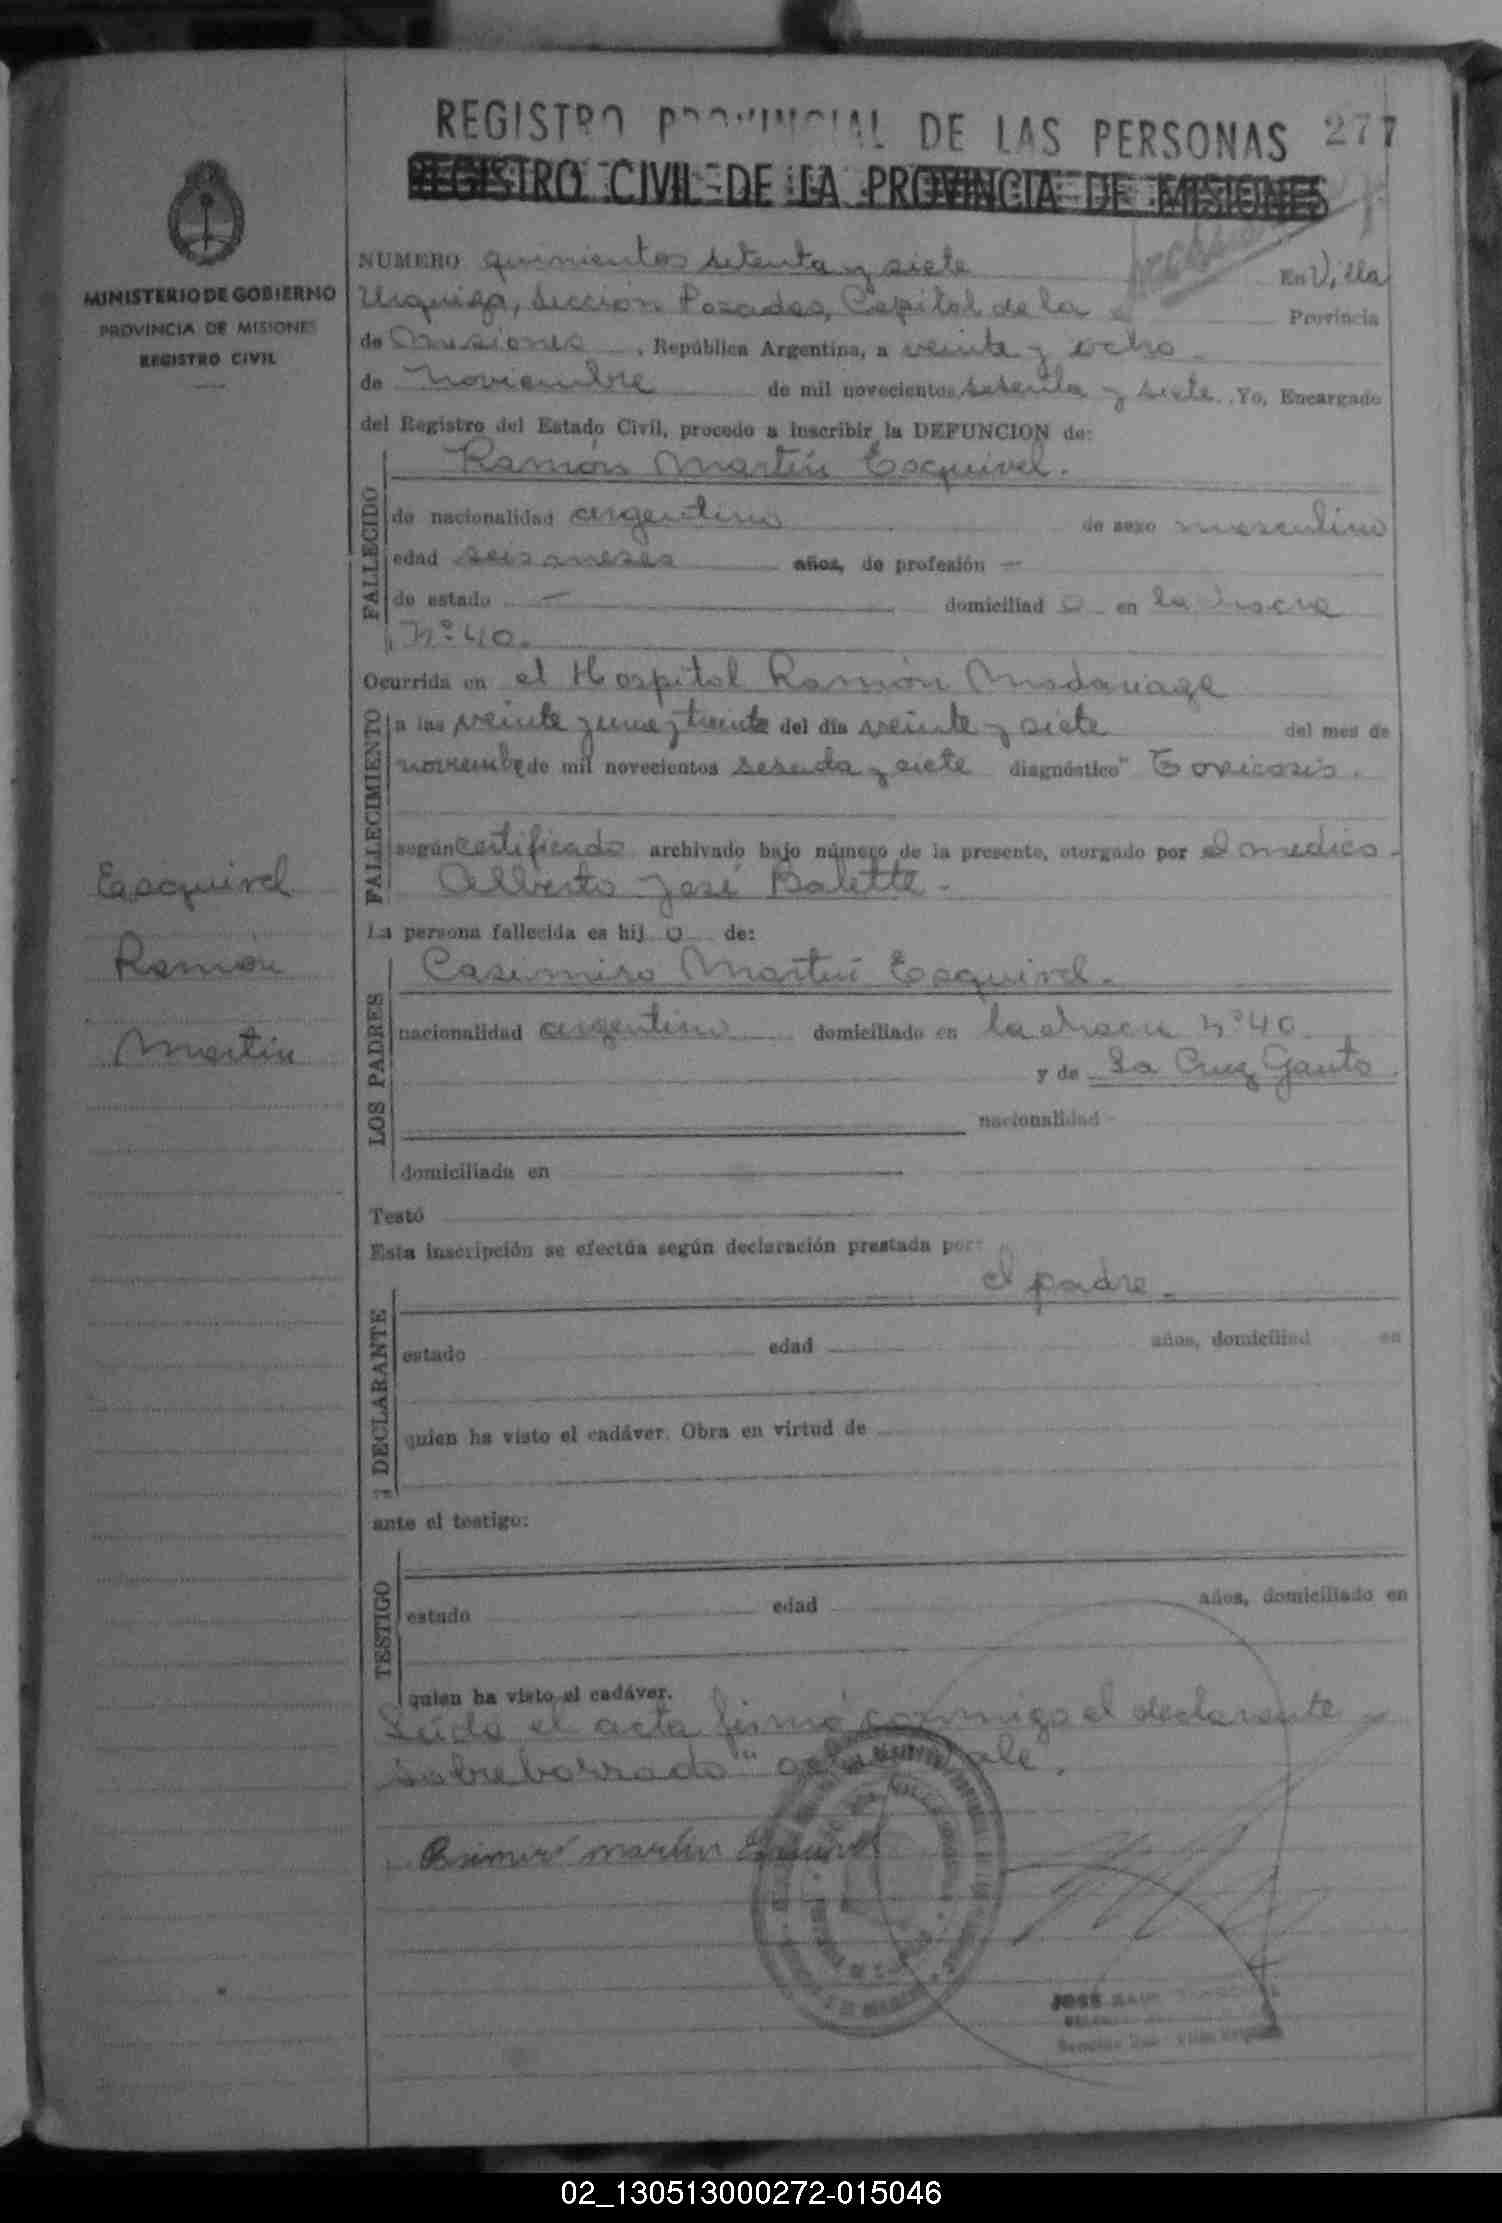 REGISTRO PROVINCIAL DE LAS PERSONAS 277
REGISTRO CIVIL DE LA PROVINCIA DE MISIONES
MINISTERIO DE GOBIERNO
PROVINCIA DE MISIONES
REGISTRO CIVIL
NUMERO quinientos setenta y siete En Villa
Urquiza, Sección Posadas, Capital de la Provincia
de Misiones, República Argentina, a veinte y ocho
de noviembre de mil novecientos sesenta y siete. Yo, Encargado
del Registro del Estado Civil, procedo a inscribir la DEFUNCION de:
Ramón Martín Esquivel.
FALLECIDO
de nacionalidad argentino de sexo masculino
edad seis meses años, de profesión —
de estado — domiciliad o en la chacra
Nº 40.
Ocurrida en el Hospital Ramón Madariaga
FALLECIMIENTO
a las veinte y una y treinta del día veinte y siete del mes de
noviembre de mil novecientos sesenta y siete diagnóstico" Toxicosis.
según certificado archivado bajo número de la presente, otorgado por el médico
Alberto José Balette.
Esquivel
Ramón
Martín
La persona fallecida es hij o de:
LOS PADRES
Casimiro Martín Esquivel.
nacionalidad argentino domiciliado en la chacra Nº 40
y de La Cruz Gauto
nacionalidad
domiciliada en
Testó
Esta inscripción se efectúa según declaración prestada por:
el padre.
DECLARANTE
estado edad años, domiciliad en
quien ha visto el cadáver. Obra en virtud de
ante el testigo:
TESTIGO
estado edad años, domiciliado en
quien ha visto el cadáver.
Leída el acta firmó conmigo el declarante
sobreborrado" vale.
Casimiro martín Esquivel
JOSE
02_130513000272-015046